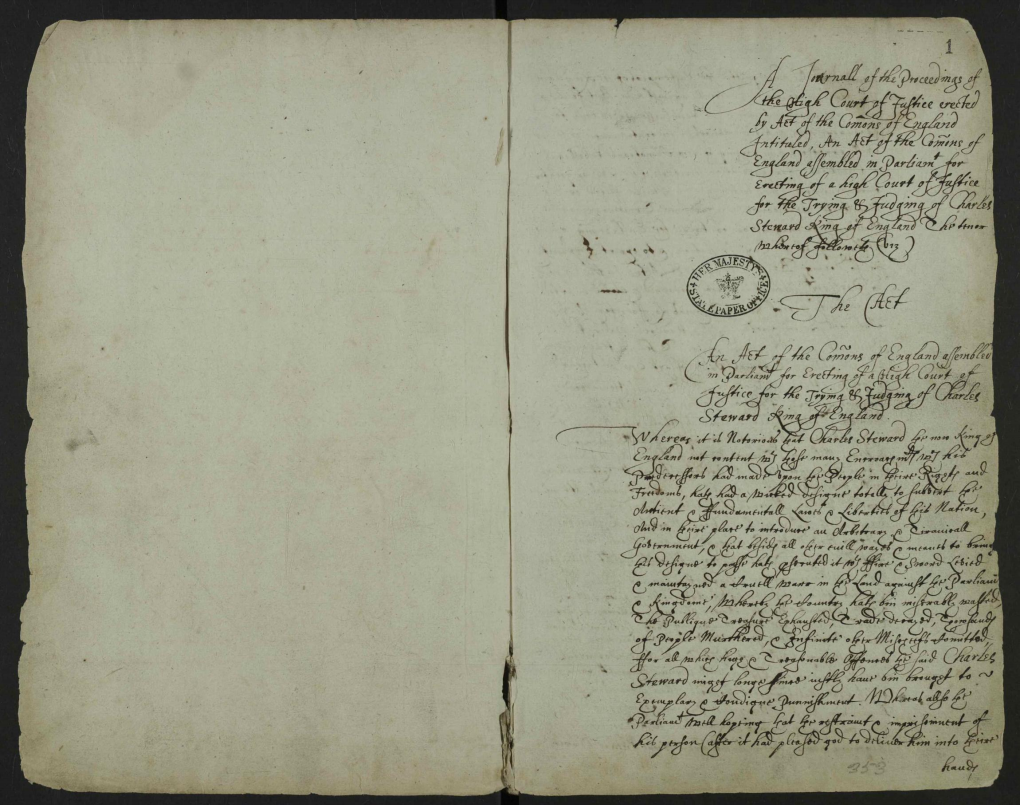 1
A Journall of the Proceedings of
the High Court of Justice erected
by Act of the Comons of England
Intituled, An Act of the Comons of
England assembled in Parliamt for
Erecting of a high Court of Justice
for the Trying & Judging of Charles
Steward King of England The tenor
whereof followeth (viz)
HER MAJESTY'S STATE PAPER OFFICE
The Act
An Act of the Comons of England assembled
in Parliamt for Erecting of a High Court of
Justice for the Trying & Judging of Charles
Steward King of England
Whereas it is Notorious that Charles Steward the now King of
England not content wth those many Encroachmts wch his
Predecessors had made upon the People in theire Rights and
Freedoms, hath had a wicked designe totally to subvert the
Antient & ffundamentall Lawes & Liberties of this Nation,
And in theire place to introduce an Arbitrary & Tiranicall
Government, & that besides all other evill waies & meanes to bring
his designe to passe hath prosecuted it wth ffire & Sword Levied
& maintayned a Cruell warr in the Land against the Parliamt
& Kingdome, Whereby the Country hath bin miserably wasted
The Publique Treasure Exhausted, Trade decayed, Thousands
of People Murthered, & Infinite other Mischeifs Comitted
ffor all which high & Treasonable Offences the said Charles
Steward might longe since iustly haue bin brought to
Exemplary & Condigne Punnishment. Whereas allso the
Parliamt well hopeing that the restraint & imprisonment of
his person (after it had pleased god to deliver him into theire
353
hands